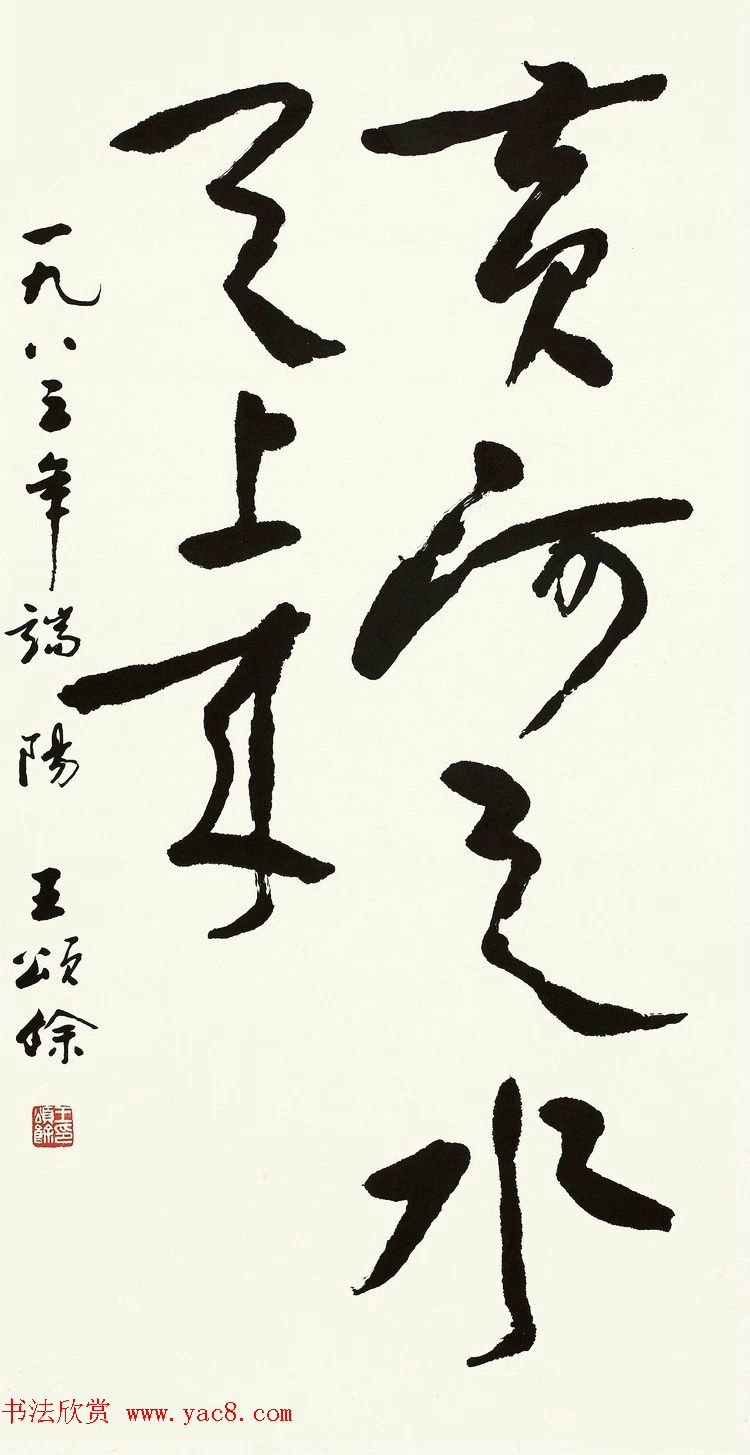 黄河之水
天上来
一九八三年端陽 王頌餘
王頌餘印
书法欣赏 www.yac8.com